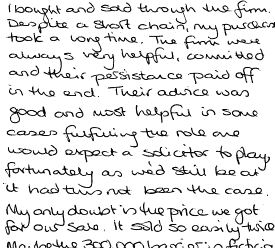 I bought and sold through the firm.
Despite a short chain, my purchase
took a long time. The firm were
always very helpful, committed
and their persistance paid off
in the end. Their advice was
good and most helpful in some
cases fulfilling the role one
would expect a solicitor to play
fortunately as we'd still be at
it had this not been the case.
My only doubt is the price we got
for our sale. It sold so easily twice
Maybe the 300,000 barrier is